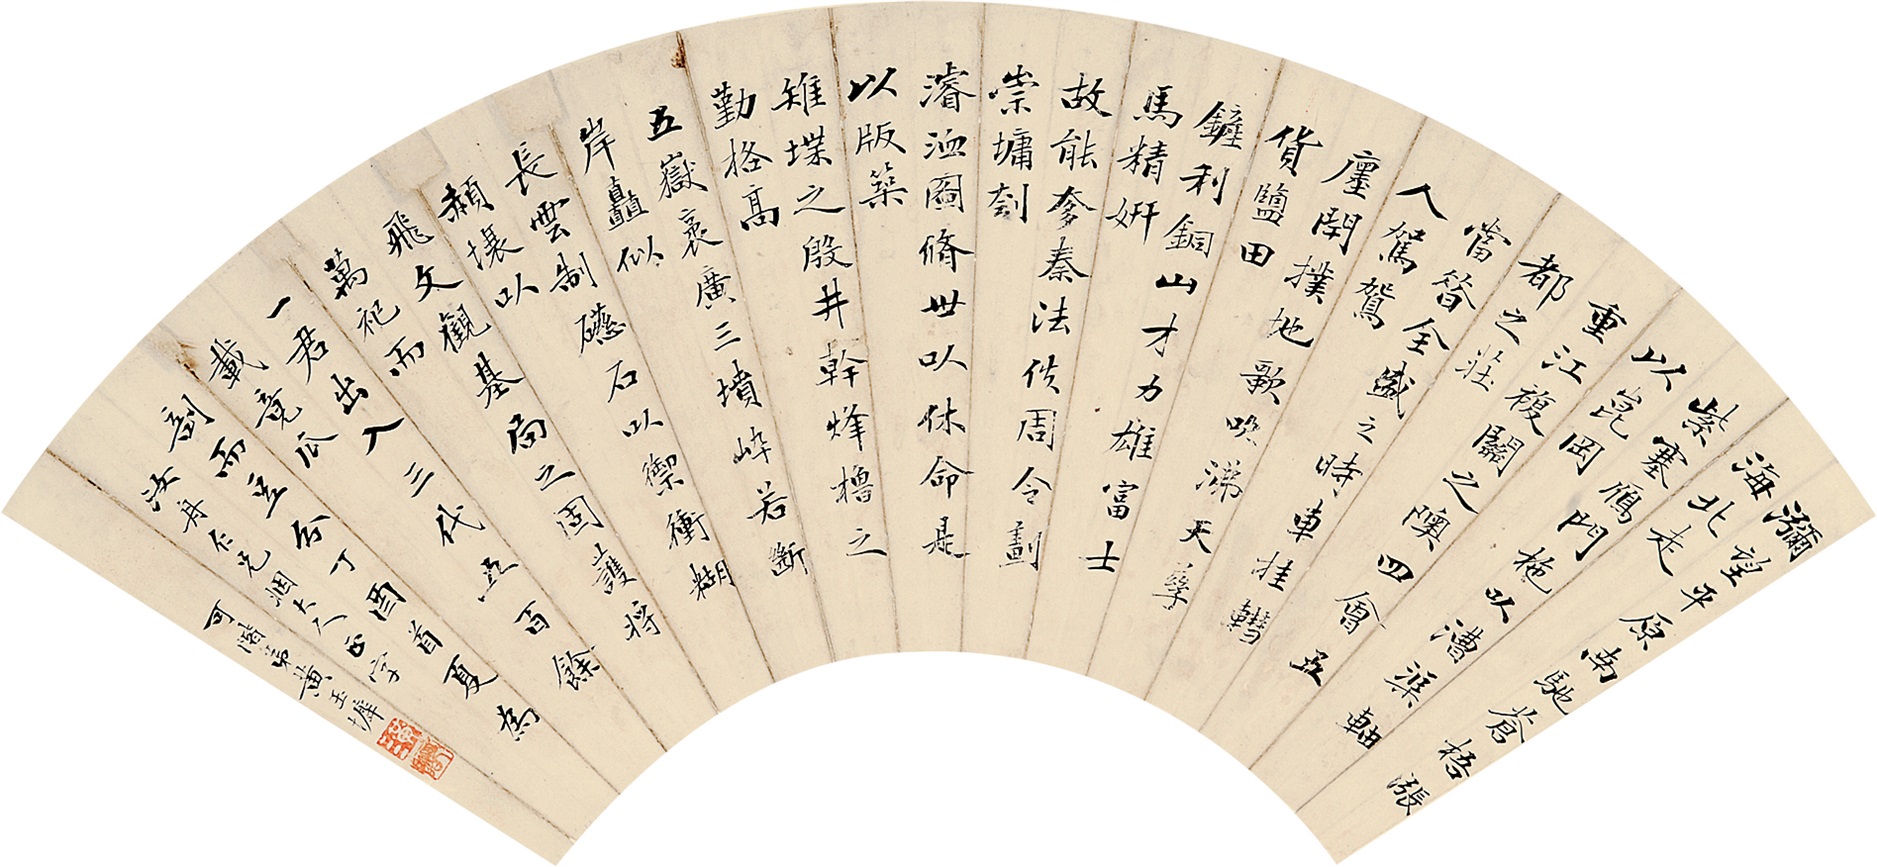 瀰望平原南馳蒼梧漲
海北走
紫塞鴈門柂以漕渠軸
以崑岡
重江複關之隩四會五
都之莊
當昔全盛之時車挂轊
人駕駕
廛閈撲地歌吹沸天孳
貨鹽田
鏟利銅山才力雄富士
馬精妍
故能奓秦法佚周令劃
崇墉刳
濬洫圖脩世以休命是
以版築
雉堞之殷井幹烽櫓之
勤格高
五嶽袤廣三墳崪若斷
岸矗似
長雲制礠石以禦衝糊
赬壤以
飛文觀基扃之固護將
萬祀而
一君出入三代五百餘
載竟瓜
剖而豆分丁酉首夏為
汝舟仁兄姻大人正字
可階弟黃玉墀